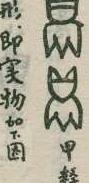 甲
形.即实物如下图